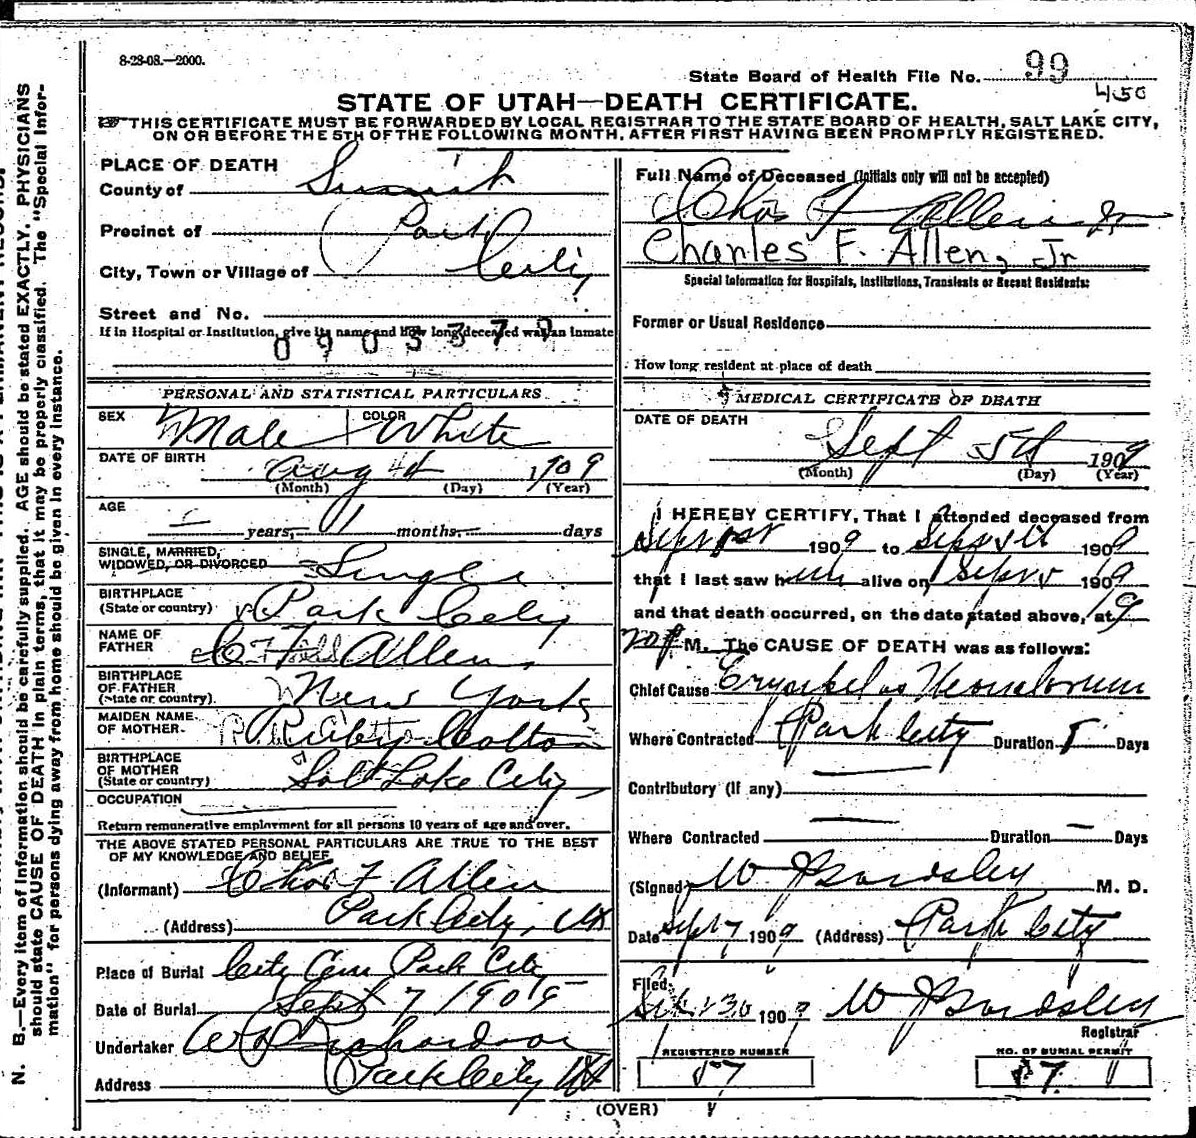 8-28-08.—2000.
State Board of Health File No. 99
450
STATE OF UTAH—DEATH CERTIFICATE.
THIS CERTIFICATE MUST BE FORWARDED BY LOCAL REGISTRAR TO THE STATE BOARD OF HEALTH, SALT LAKE CITY,
ON OR BEFORE THE 5TH OF THE FOLLOWING MONTH, AFTER FIRST HAVING BEEN PROMPTLY REGISTERED.
PLACE OF DEATH
County of Summit
Precinct of Park
City, Town or Village of City
Street and No.
If in Hospital or Institution, give its name and how long deceased was an inmate
0905379
PERSONAL AND STATISTICAL PARTICULARS
SEX Male COLOR White
DATE OF BIRTH Aug 4th 1909
(Month) (Day) (Year)
AGE
— years, 1 months, days
SINGLE, MARRIED,
WIDOWED, OR DIVORCED Single
BIRTHPLACE
(State or country) Park City
NAME OF
FATHER C F Allen
BIRTHPLACE
OF FATHER
(State or country). New York
MAIDEN NAME
OF MOTHER Ruby Colton
BIRTHPLACE
OF MOTHER
(State or country) Salt Lake City
OCCUPATION
Return remunerative employment for all persons 10 years of age and over.
THE ABOVE STATED PERSONAL PARTICULARS ARE TRUE TO THE BEST
OF MY KNOWLEDGE AND BELIEF
(Informant) Chas F Allen
(Address) Park City, Ut
Place of Burial City Cem Park City
Date of Burial Sept 7 1909
Undertaker Richardson
Address Park City Ut
Full Name of Deceased (Initials only will not be accepted)
Chas F Allen Jr
Charles F. Allen, Jr
Special Information for Hospitals, Institutions, Transients or Recent Residents:
Former or Usual Residence
How long resident at place of death
MEDICAL CERTIFICATE OF DEATH
DATE OF DEATH
Sept 5th 1909
(Month) (Day) (Year)
I HEREBY CERTIFY, That I attended deceased from
Sept 1st 1909 to Sept 5th 1909
that I last saw him alive on Sept 5 1909
and that death occurred, on the date stated above, at
M. The CAUSE OF DEATH was as follows:
Chief Cause Erysipelas Neonatorum
Where Contracted Park City Duration 5 Days
Contributory (if any)
Where Contracted — Duration — Days
(Signed) W J Bardsley M. D.
Date Sept 7 1909 (Address) Park City
Filed
1909 W J Bardsley
Registrar
REGISTERED NUMBER
57
NO. OF BURIAL PERMIT
57
(OVER)
N. B.—Every item of information should be carefully supplied. AGE should be stated EXACTLY. PHYSICIANS
should state CAUSE OF DEATH in plain terms, that it may be properly classified. The "Special Infor-
mation" for persons dying away from home should be given in every instance.